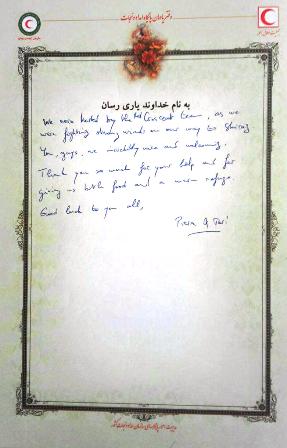 دفتر یادمان پایگاه امداد و نجات
به نام خداوند یاری رسان
We were hosted by the Red Crescent team, as we
were fighting strong winds on our way to Shiraz
You, guys, are incredibly warm and welcoming.
Thank you so much for your help and for
giving us both food and a warm refuge.
Good luck to you all,